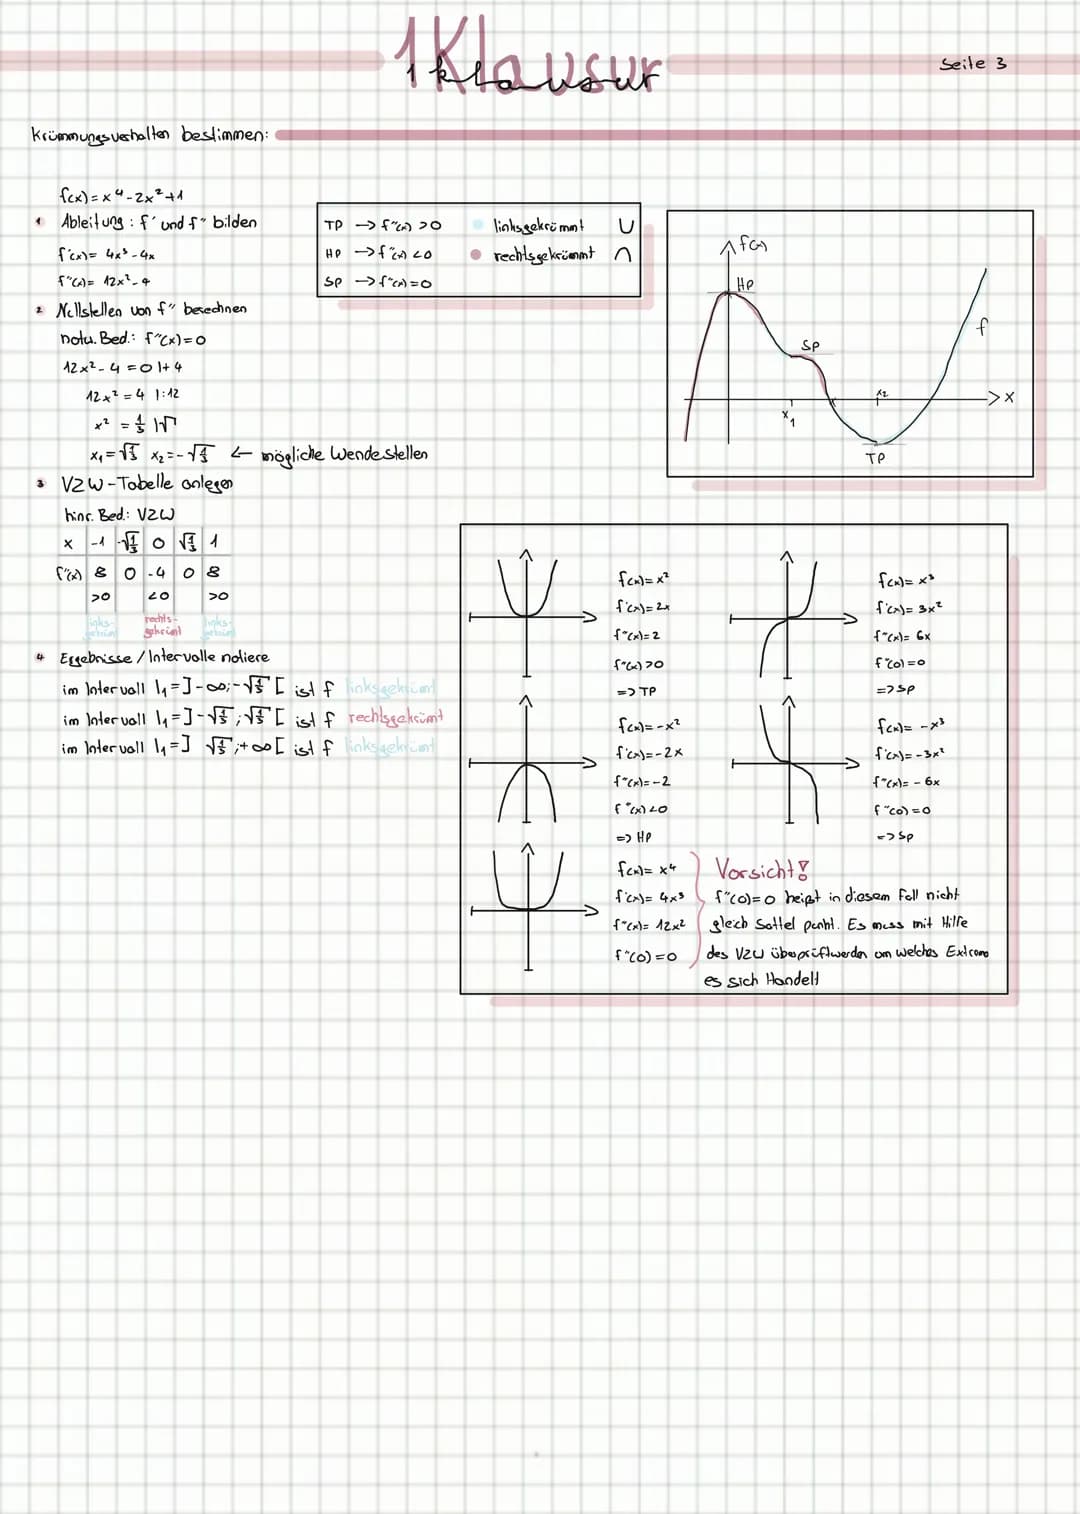 1Klausur
1 klausur
Seite 3
Krümmungsverhalten bestimmen:
f(x)=x⁴-2x²+1
1 Ableitung: f' und f" bilden
f'(x)= 4x³-4x
f"(x)= 12x²-4
2 Nullstellen von f" berechnen
notw. Bed.: f"(x)=0
12x²-4=0 |+4
12x²=4 |:12
x² = 1/3 |√
x₁=√1/3 x₂=-√1/3 ← mögliche Wendestellen
3 VZW-Tabelle anlegen
hinr. Bed.: VZW
x -1 -√1/3 0 √1/3 1
f"(x) 8 0 -4 0 8
>0 <0 >0
links- rechts- links-
gekrümt gekrümt gekrümt
4 Ergebnisse / Intervalle notiere
im Intervall I₁=]-∞;-√1/3[ ist f linksgekrümt
im Intervall I₁=]-√1/3;√1/3[ ist f rechtsgekrümt
im Intervall I₁=] √1/3;+∞[ ist f linksgekrümt
TP → f"(x) >0
HP → f"(x) <0
SP → f"(x)=0
linksgekrümmt ∪
rechtsgekrümmt ∩
f(x)
HP
SP
f
x₁
x₂
x
TP
f(x)=x²
f'(x)=2x
f"(x)=2
f"(x)>0
=> TP
f(x)= x³
f'(x)= 3x²
f"(x)= 6x
f"(0)=0
=> SP
f(x)=-x²
f'(x)=-2x
f"(x)=-2
f"(x)<0
=> HP
f(x)= -x³
f'(x)=-3x²
f"(x)= -6x
f"(0)=0
=> SP
f(x)= x⁴
f'(x)= 4x³
f"(x)= 12x²
f"(0)=0
Vorsicht!
f"(0)=0 heißt in diesem Fall nicht
gleich Sattel punkt. Es muss mit Hilfe
des VZW überprüft werden um welches Extrema
es sich Handelt